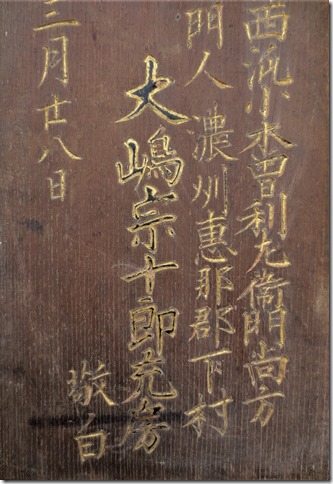 西流小木曽利左衛門尚方
門人 濃州惠那郡下村
大嶋宗十郎充房
敬白
三月廿八日